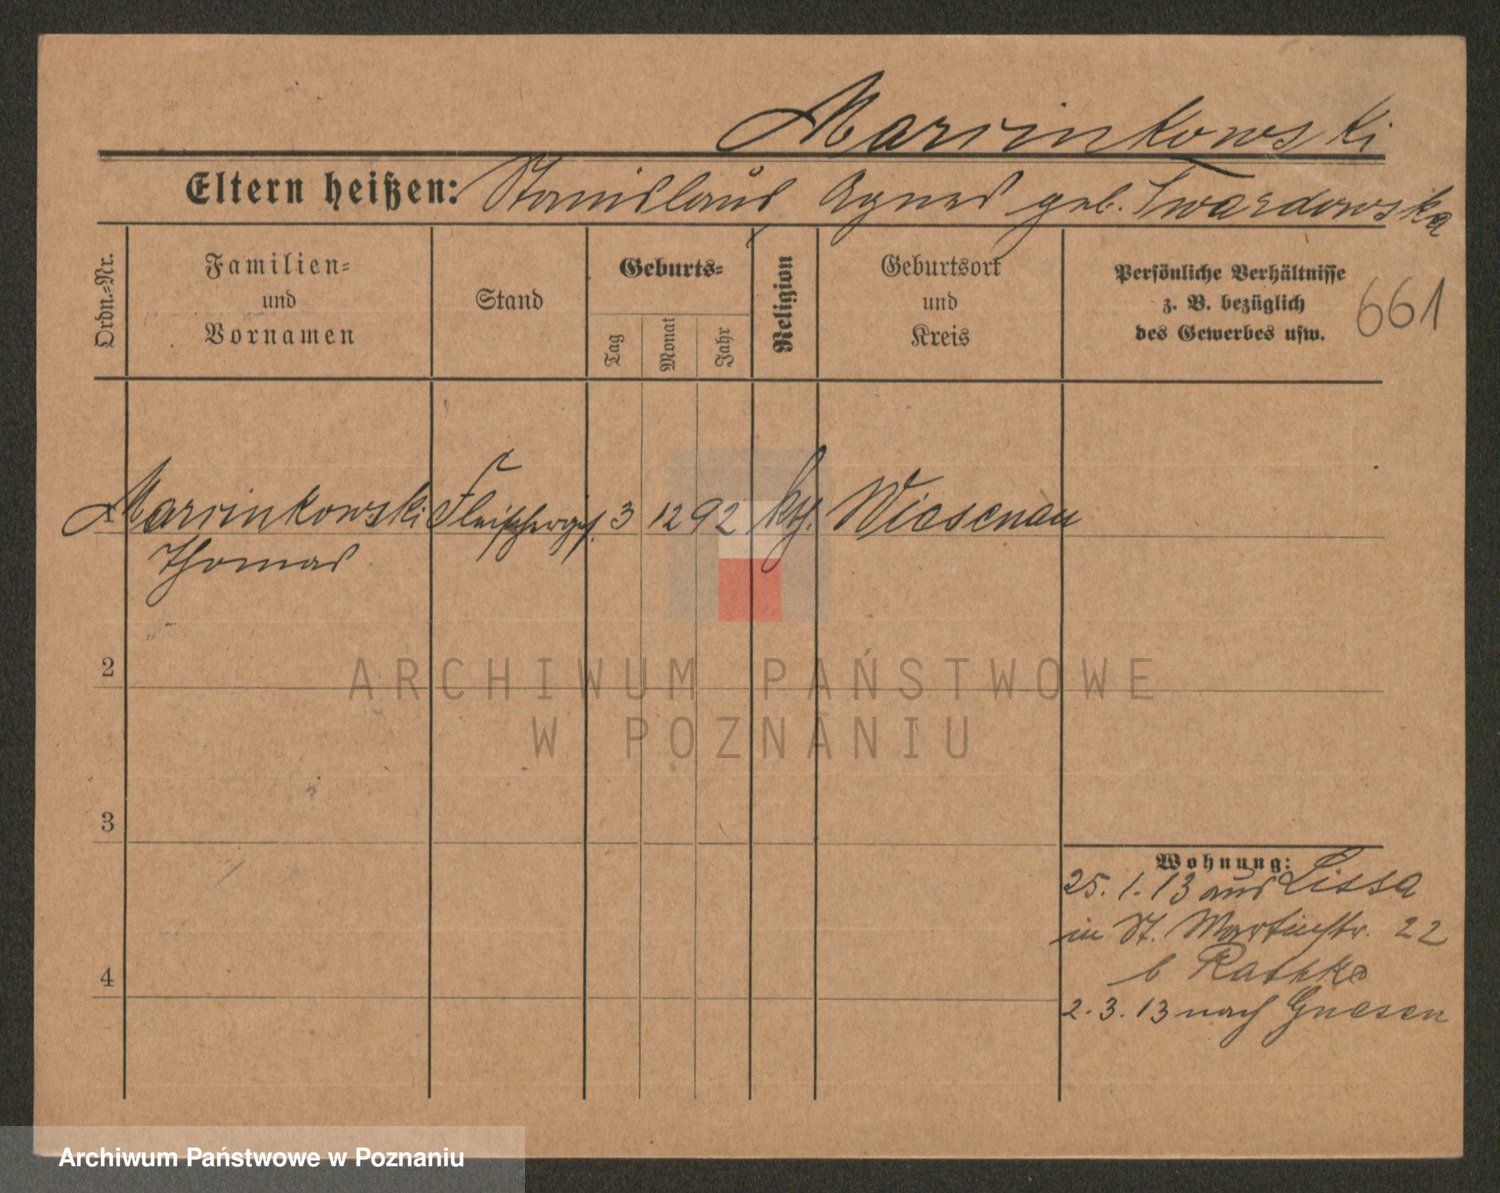 Marcinkowski
Eltern heißen: Stanislaus Agnes geb. Twardowska
Ordn.=Nr.
Familien=
und
Vornamen
Stand
Geburts=
Tag
Monat
Jahr
Religion
Geburtsort
und
Kreis
Persönliche Verhältnisse
z. B. bezüglich
des Gewerbes usw.
661
1 Marcinkowski Fleischerges. 3 12 92 kth. Wiesenau
Thomas
2
ARCHIWUM PAŃSTWOWE
W POZNANIU
3
Wohnung:
25. 1. 13 aus Lissa
in St. Martinstr. 22
b Rathke
4
2. 3. 13 nach Gnesen
Archiwum Państwowe w Poznaniu